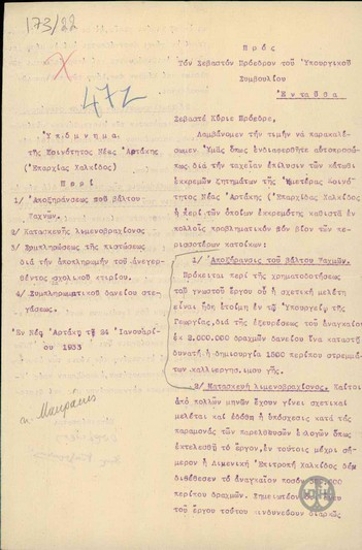 173/22
X
472
Πρός
Τόν Σεβαστόν Πρόεδρον τοῦ Ὑπουργικοῦ
Συμβουλίου
Ἐνταῦθα
Ὑπόμνημα
τῆς Κοινότητος Νέας Ἀρτάκης
(Ἐπαρχίας Χαλκίδος)
Περί
1/ Ἀποξηράνσεως τοῦ βάλτου
Ψαχνῶν.
2/ Κατασκευῆς λιμενοβραχίονος
3/ Συμπληρώσεως τῆς πιστώσεως
διά τήν ἀποπλήρωμήν τοῦ ἀνεγερ-
θέντος σχολικοῦ κτιρίου.
4/ Συμπληρωματικοῦ δανείου στε-
γάσεως.
Ἐν Νέᾳ Ἀρτάκῃ τῇ 24 Ἰανουαρί-
ου 1933
Σεβαστέ Κύριε Πρόεδρε,
Λαμβάνομεν τήν τιμήν νά παρακαλέ-
σωμεν Ὑμᾶς ὅπως ἐνδιαφερθῆτε αὐτοπροσώ-
πως διά τήν ταχεῖαν ἐπίλυσιν τῶν κάτωθι
ἐκκρεμῶν ζητημάτων τῆς ἡμετέρας Κοινό-
τητος Νέας Ἀρτάκης (Ἐπαρχίας Χαλκίδος
ἡ περί τῶν ὁποίων ἐκκρεμότης καθιστᾷ ἐν
πολλοῖς προβληματικόν τόν βίον τῶν πε-
ρισσοτέρων κατοίκων:
1/ Ἀποξήρανσις τοῦ βάλτου Ψαχνῶν.
Πρόκειται περί τῆς χρηματοδοτήσεως
τοῦ γνωστοῦ ἔργου οὗ ἡ σχετική μελέτη
εἶναι ἤδη ἑτοίμη ἐν τῷ Ὑπουργείῳ τῆς
Γεωργίας, διά τῆς ἐξευρέσεως τοῦ ἀναγκαίου
ἐκ 2.000.000 δραχμῶν δανείου ἵνα καταστῇ
δυνατή ἡ δημιουργία 1500 περίπου στρεμμά-
των καλλιεργησίμου γῆς.
2/ Κατασκευή λιμενοβραχίονος. Καίτοι
ἀπό πολλῶν μηνῶν ἔχουν γίνει σχετικαί
μελέται καί ἐδόθη ἡ ὑπόσχεσις κατά τάς
παραμονάς τῶν παρελθουσῶν ἐκλογῶν ὅπως
ἐκτελεσθῇ τό ἔργον, ἐν τούτοις μέχρι σή-
μερον ἡ Λιμενική Ἐπιτροπή Χαλκίδος δέν
διέθεσεν τό ἀναγκαῖον ποσόν
περίπου δραχμῶν. Σημειωτέον
τοῦ ἔργου τούτου κινδυνεύουν διαρκῶς